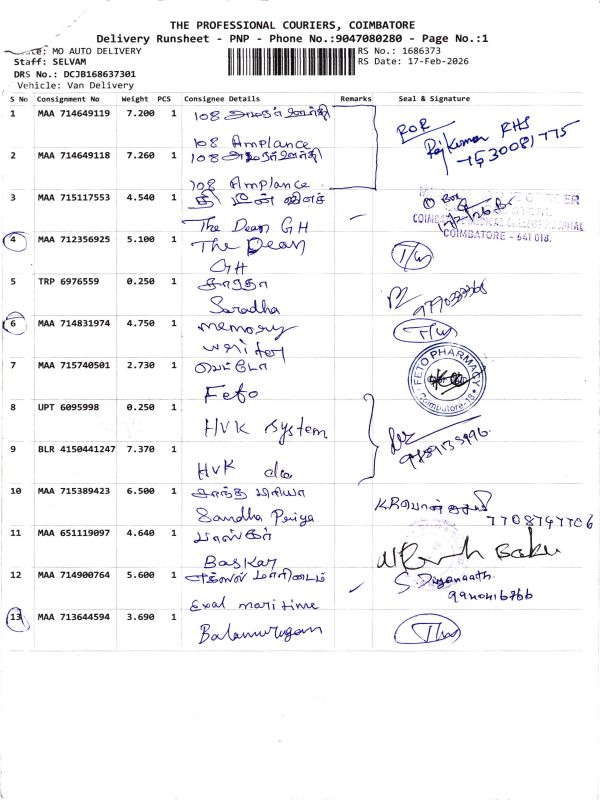 THE PROFESSIONAL COURIERS, COIMBATORE
Delivery Runsheet - PNP - Phone No.:9047080280 - Page No.:1
MO AUTO DELIVERY
RS No.: 1686373
Staff: SELVAM
RS Date: 17-Feb-2026
DRS No.: DCJB168637301
Vehicle: Van Delivery
S No Consignment No Weight PCS Consignee Details Remarks Seal & Signature
1 MAA 714649119 7.200 1 108
108 Amplance
ROR
Rajkumar
7530081775
2 MAA 714649118 7.260 1 108
108 Amplance
3 MAA 715117553 4.540 1
The Dean GH
COIMBATORE MEDICAL COLLEGE HOSPITAL
COIMBATORE - 641 018.
4 MAA 712356925 5.100 1 The Dean
GH
5 TRP 6976559 0.250 1 சாரதா
Saradha
6 MAA 714831974 4.750 1 memory
writer
7 MAA 715740501 2.730 1
Feto
FETO PHARMACY
Coimbatore-18
8 UPT 6095998 0.250 1
HVK System
9 BLR 4150441247 7.370 1
HVK do
10 MAA 715389423 6.500 1
Sandha Periya
7708747706
11 MAA 651119097 4.640 1 பாஸ்கர்
Baskar
12 MAA 714900764 5.600 1
Exal maritime
9940416766
13 MAA 713644594 3.690 1
Balamurugan